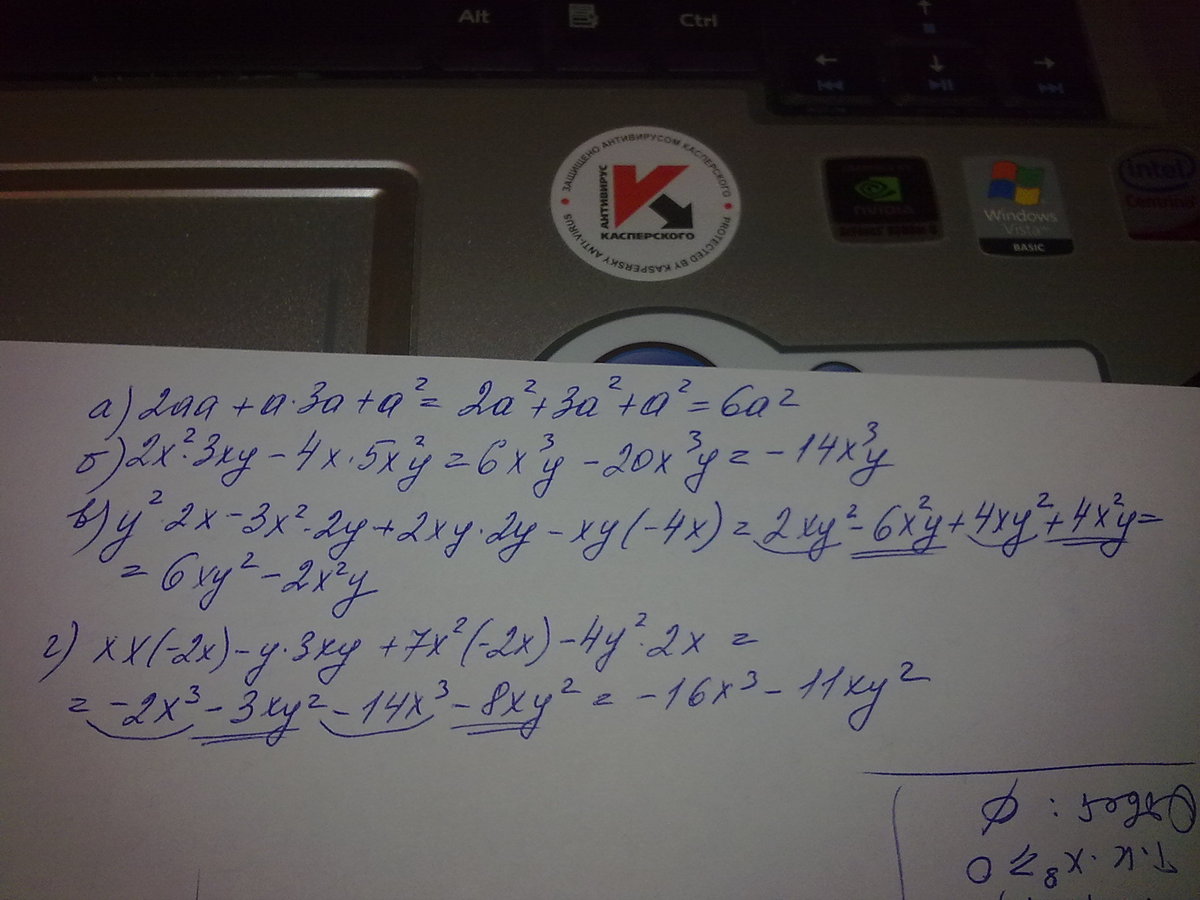 Alt
Ctrl
ЗАЩИЩЕНО АНТИВИРУСОМ КАСПЕРСКОГО
АНТИВИРУС
КАСПЕРСКОГО
PROTECTED BY KASPERSKY ANTI-VIRUS
nVIDIA
Windows Vista
BASIC
intel
а) 2aa + a·3a + a² = 2a² + 3a² + a² = 6a²
б) 2x²·3xy - 4x·5x²y = 6x³y - 20x³y = -14x³y
в) y²·2x - 3x²·2y + 2xy·2y - xy(-4x) = 2xy² - 6x²y + 4xy² + 4x²y =
= 6xy² - 2x²y
г) xx(-2x) - y·3xy + 7x²(-2x) - 4y²·2x =
= -2x³ - 3xy² - 14x³ - 8xy² = -16x³ - 11xy²
Т.к. x⁸ ≥ 0
Ответ: ∅